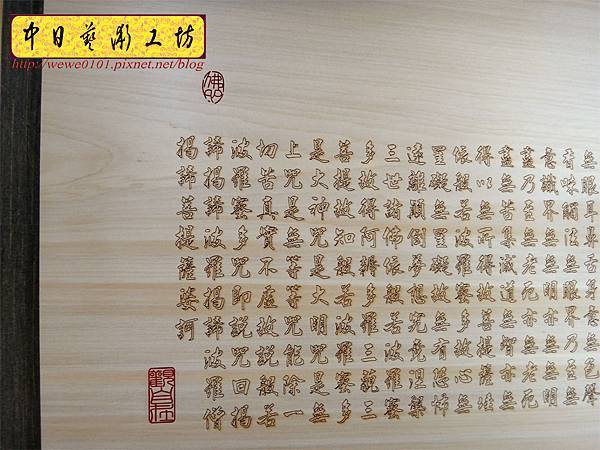 中日藝術工坊
http://wewe0101.pixnet.net/blog
無眼耳鼻舌身意無色聲
香味觸法無眼界乃至無
意識界無無明亦無無明
盡乃至無老死亦無老死
盡無苦集滅道無智亦無
得以無所得故菩提薩埵
依般若波羅蜜多故心無
罣礙無罣礙故無有恐怖
遠離顛倒夢想究竟涅槃
三世諸佛依般若波羅蜜
多故得阿耨多羅三藐三
菩提故知般若波羅蜜多
是大神咒是大明咒是無
上咒是無等等咒能除一
切苦真實不虛故說般若
波羅蜜多咒即說咒曰揭
諦揭諦波羅揭諦波羅僧
揭諦菩提薩婆訶
觀自在